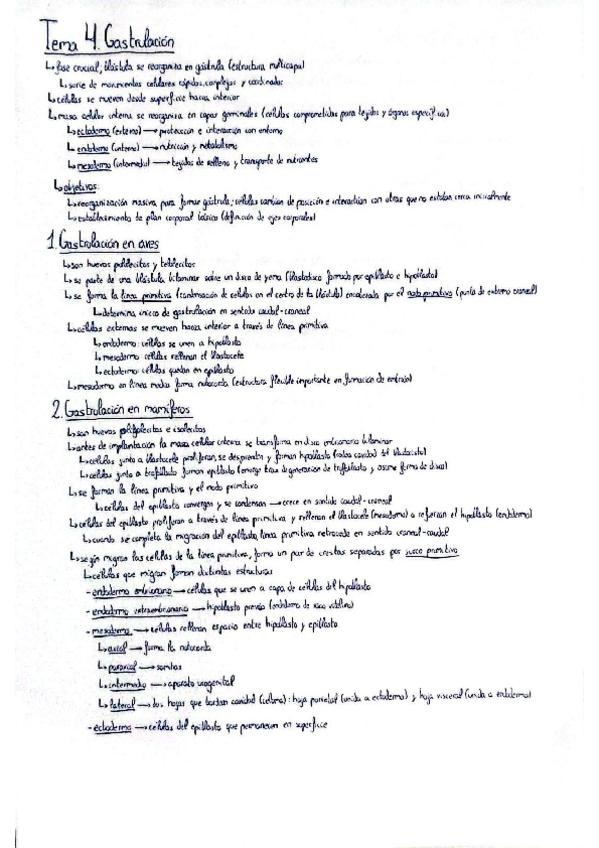 Tema 4. Gastrulación
↳ fase crucial; blástula se reorganiza en gástrula (estructura multicapa)
↳ serie de movimientos celulares rápidos, complejos y coordinados
↳ células se mueven desde superficie hacia interior
↳ masa celular interna se reorganiza en capas germinales (células comprometidas para tejidos y órganos específicos)
↳ ectodermo (externo) → protección e interacción con entorno
↳ endodermo (interno) → nutrición y metabolismo
↳ mesodermo (intermedio) → tejidos de relleno y transporte de nutrientes
↳ objetivos:
↳ reorganización masiva para formar gástrula; células cambian de posición e interactúan con otras que no estaban cerca inicialmente
↳ establecimiento de plan corporal básico (definición de ejes corporales)
1. Gastrulación en aves
↳ son huevos polilecitos y telolecitos
↳ se parte de una blástula bilaminar sobre un disco de yema (blastodisco formado por epiblasto e hipoblasto)
↳ se forma la línea primitiva (condensación de células en el centro de la blástula) encabezada por el nodo primitivo (punta de extremo craneal)
↳ determina inicio de gastrulación en sentido caudal-craneal
↳ células externas se mueven hacia interior a través de línea primitiva
↳ endodermo: células se unen a hipoblasto
↳ mesodermo: células rellenan el blastocele
↳ ectodermo: células quedan en epiblasto
↳ mesodermo en línea media forma notocorda (estructura flexible importante en formación de embrión)
2. Gastrulación en mamíferos
↳ son huevos oligolecitos e isolecitos
↳ antes de implantación la masa celular interna se transforma en disco embrionario bilaminar
↳ células junto a blastocele proliferan, se desprenden y forman hipoblasto (rodea cavidad del blastocisto)
↳ células junto a trofoblasto forman epiblasto (emerge tras degeneración de trofoblasto y asume forma de disco)
↳ se forman la línea primitiva y el nodo primitivo
↳ células del epiblasto convergen y se condensan → crece en sentido caudal-craneal
↳ células del epiblasto proliferan a través de línea primitiva y rellenan el blastocele (mesodermo) o refuerzan el hipoblasto (endodermo)
↳ cuando se completa la migración del epiblasto, línea primitiva retrocede en sentido craneal-caudal
↳ según migran las células de la línea primitiva, forma un par de crestas separadas por surco primitivo
↳ células que migran forman distintas estructuras
- endodermo embrionario → células que se unen a capa de células del hipoblasto
- endodermo extraembrionario → hipoblasto previo (endodermo de saco vitelino)
- mesodermo → células rellenan espacio entre hipoblasto y epiblasto
↳ axial → forma la notocorda
↳ paraxial → somitas
↳ intermedio → aparato urogenital
↳ lateral → dos hojas que bordean cavidad (celoma): hoja parietal (unida a ectodermo) y hoja visceral (unida a endodermo)
- ectodermo → células del epiblasto que permanecen en superficie